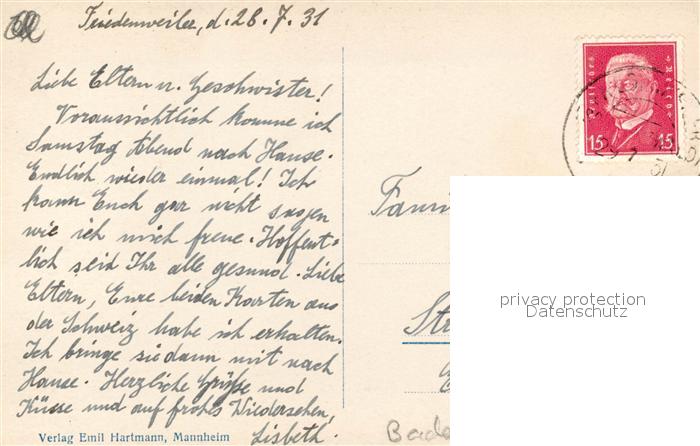 Friedenweiler, d. 28.7.31
Liebe Eltern u. Geschwister!
Voraussichtlich komme ich
Samstag Abend nach Hause.
Endlich wieder einmal! Ich
kann Euch gar nicht sagen
wie ich mich freue. Hoffent-
lich seid Ihr alle gesund. Liebe
Eltern, Eure beiden Karten aus
der Schweiz habe ich erhalten.
Ich bringe sie dann mit nach
Hause. Herzliche Grüße und
Küsse und auf frohes Wiedersehen,
Lisbeth.
Verlag Emil Hartmann, Mannheim
15 15
Deutsches Reich
Fami
Str
Bade
privacy protection
Datenschutz